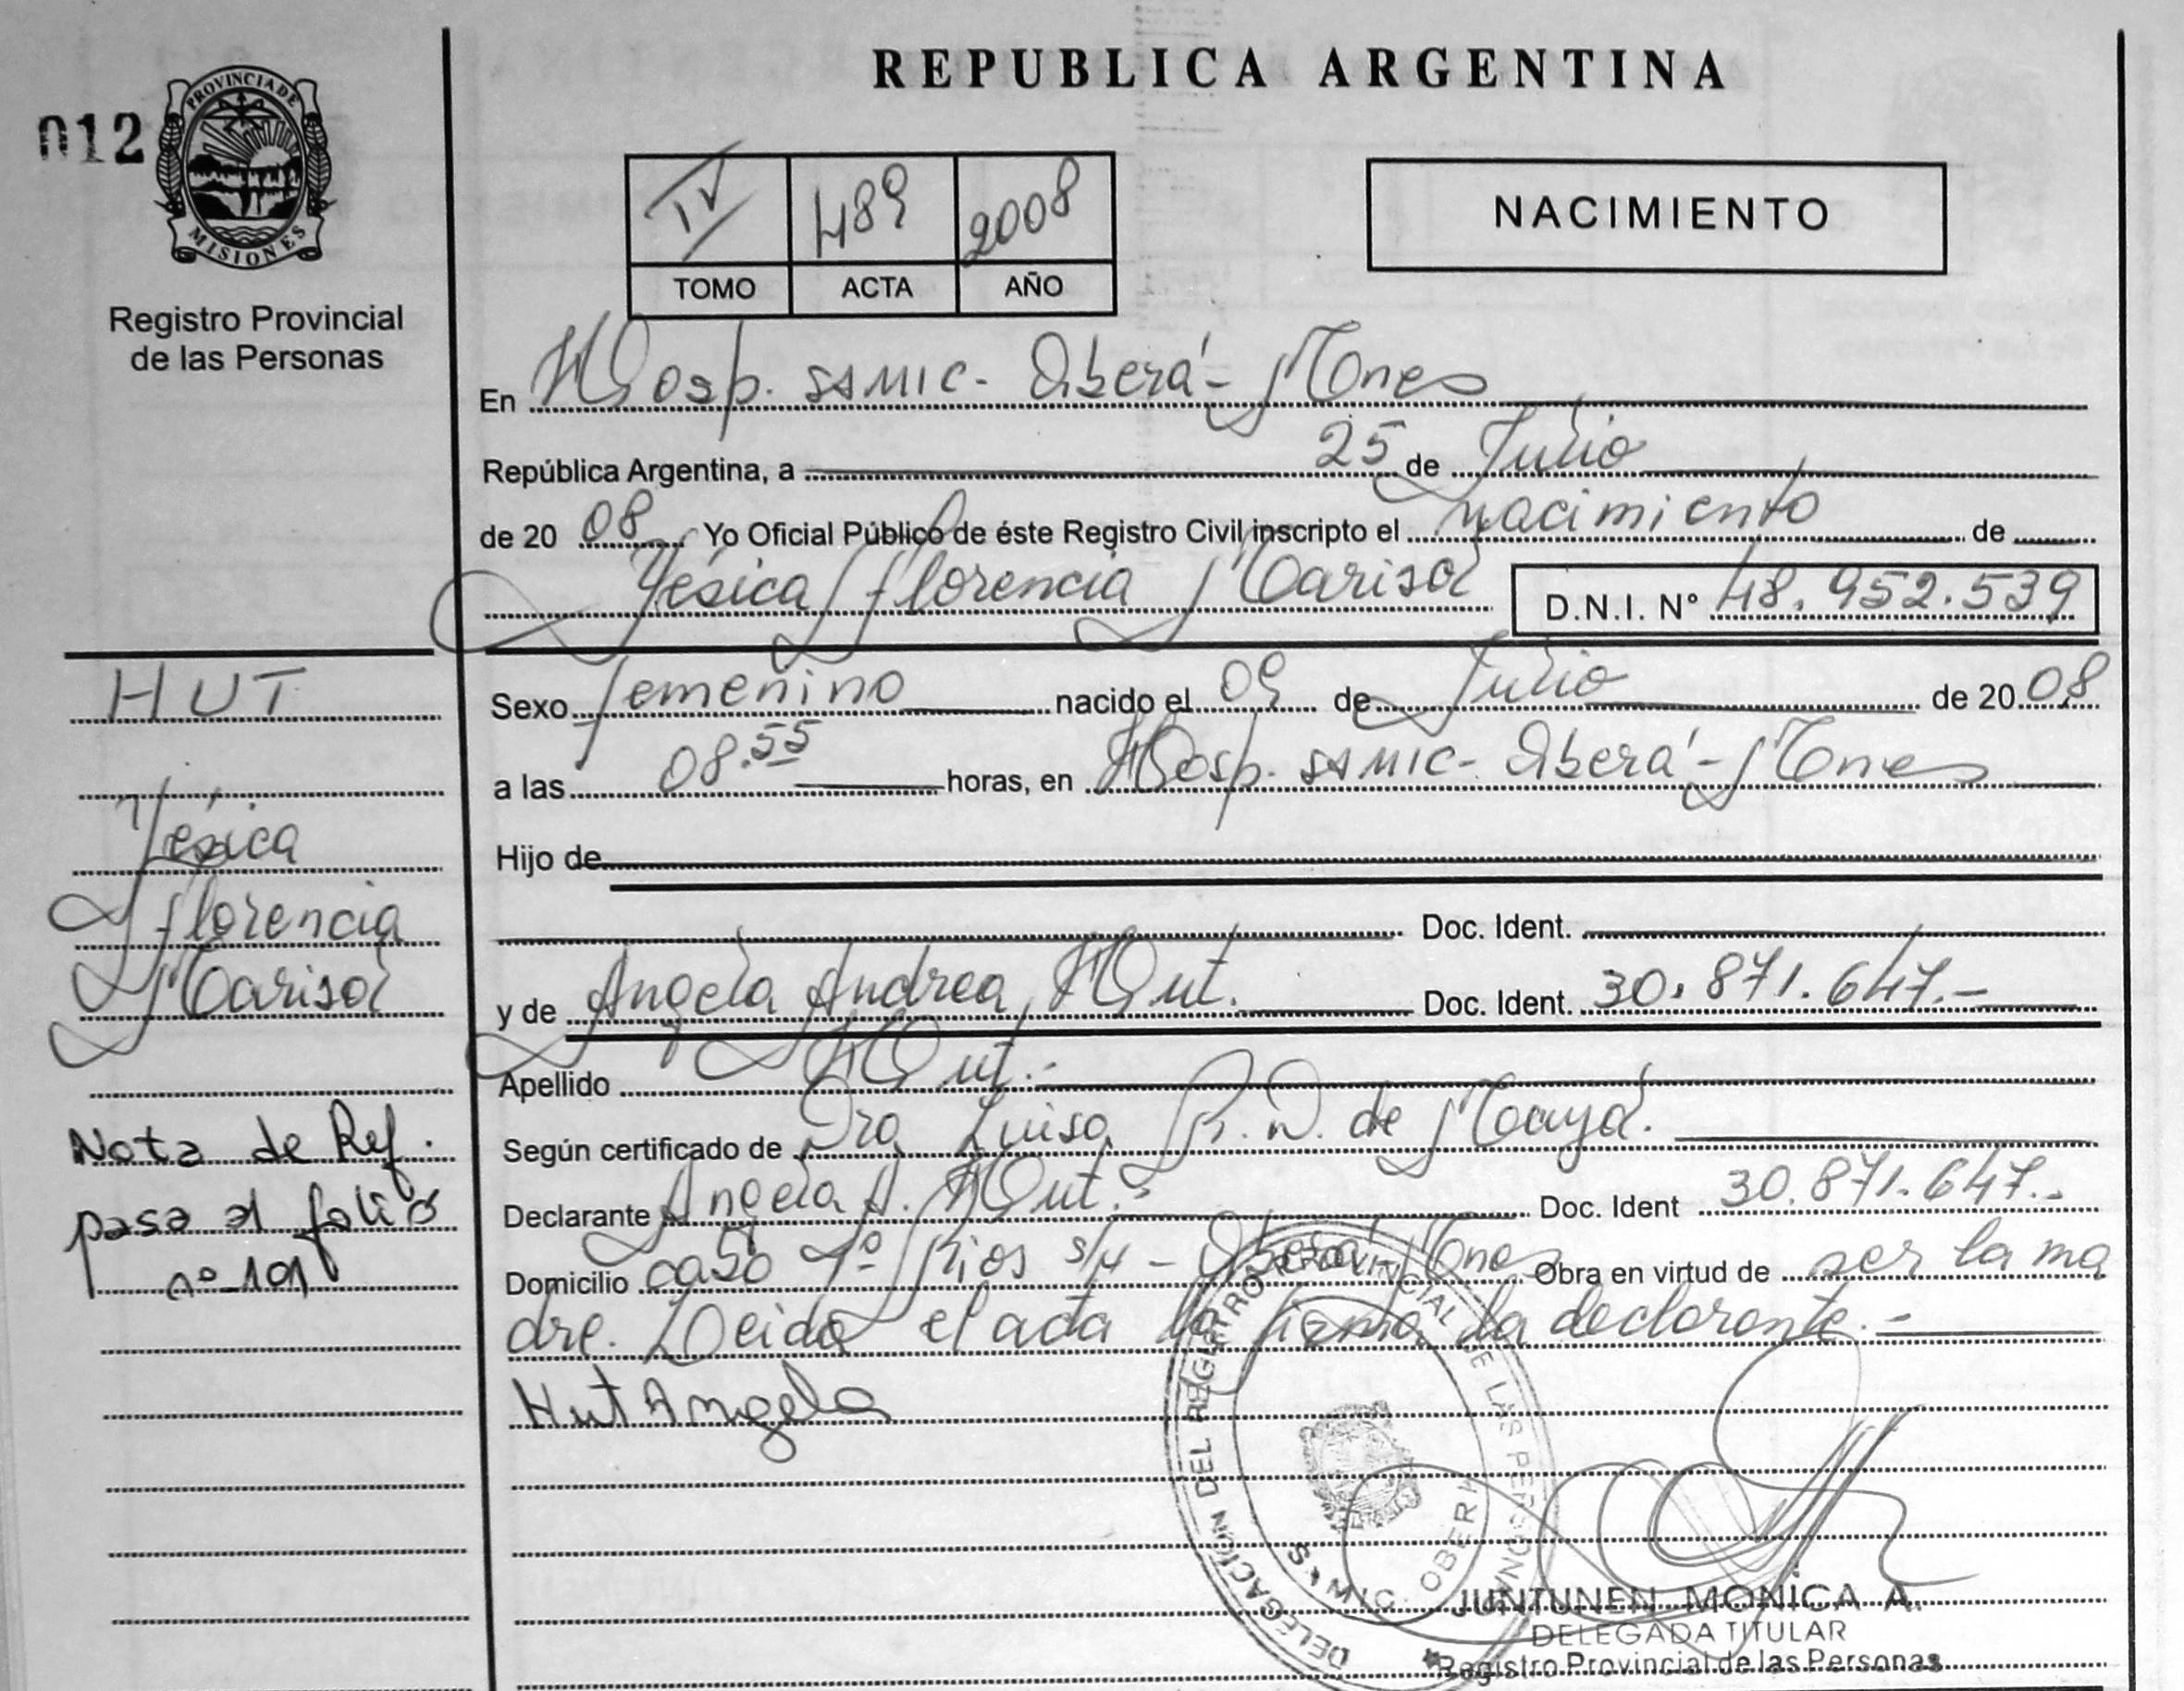 REPUBLICA ARGENTINA
012
PROVINCIA DE
MISIONES
Registro Provincial
de las Personas
IV 489 2008
TOMO ACTA AÑO
NACIMIENTO
En Hosp. SAMIC - Oberá - Mnes
República Argentina, a 25 de Julio
de 20 08 Yo Oficial Público de éste Registro Civil inscripto el nacimiento de
Yésica Florencia Marisol D.N.I. N° 48.952.539
Sexo femenino nacido el 09 de Julio de 20 08
a las 08.55 horas, en Hosp. SAMIC - Oberá - Mnes
Hijo de
Doc. Ident.
y de Angela Andrea Hut. Doc. Ident. 30.871.647.-
Apellido Hut.-
Según certificado de Dra Luisa R. D. de Maya.
Declarante Angela A. Hut.- Doc. Ident 30.871.647.-
Domicilio Oberá Mnes Obra en virtud de ser la ma
dre. Leida el acta la firma la declarante.-
Hut Angela
HUT
Yésica
Florencia
Marisol
Nota de Ref.
pasa al folio
nº 101
DELEGACION DEL REGISTRO PROVINCIAL DE LAS PERSONAS
SAMIC - OBERA
JUNTUNEN MONICA A.
DELEGADA TITULAR
Registro Provincial de las Personas